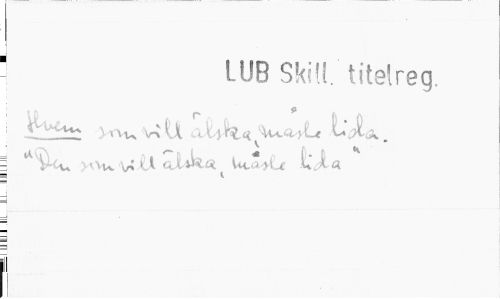 LUB Skill. titelreg.
Hvem som vill älska, måste lida.
"Den som vill älska, måste lida"